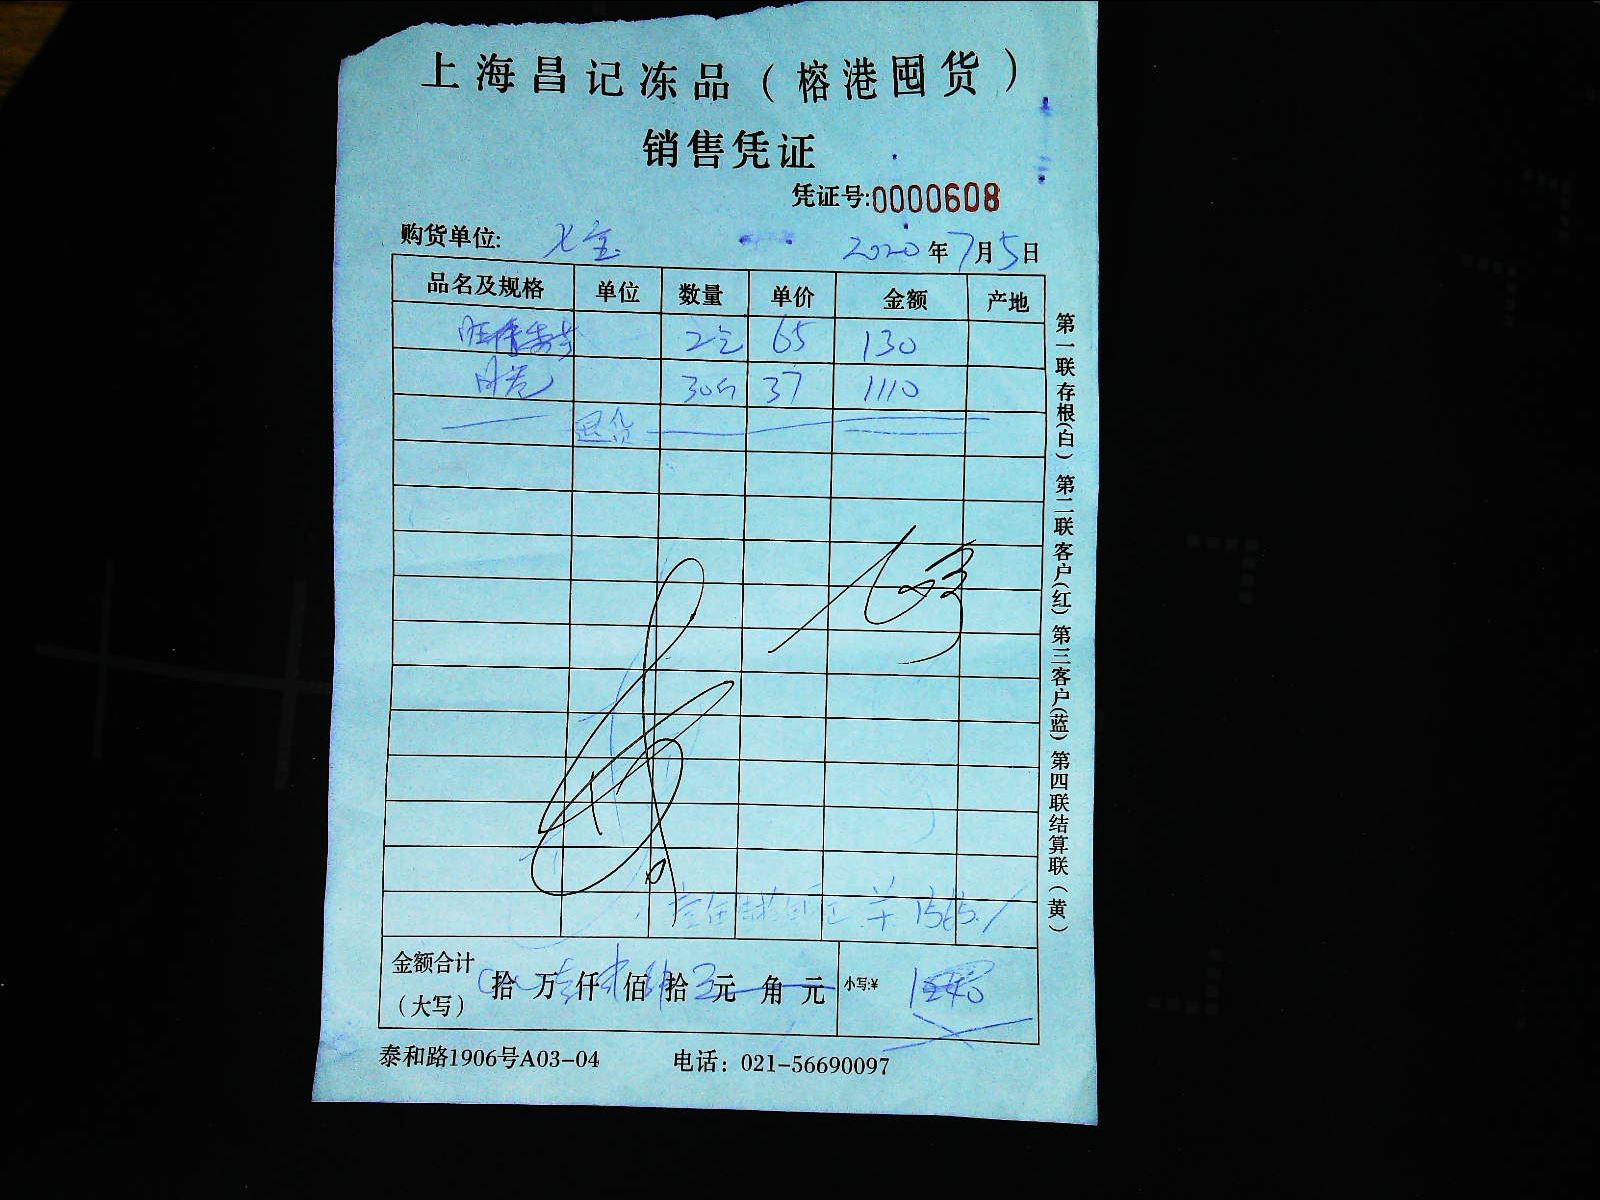 上海昌记冻品（榕港囤货）
销售凭证
凭证号:0000608
购货单位: 七宝 2020年7月5日
品名及规格 单位 数量 单价 金额 产地
2 65 130
30 37 1110
退货
金额合计（大写） 拾 万 仟 佰 拾 元 角 元 小写:¥
泰和路1906号A03-04 电话：021-56690097
第一联存根(白) 第二联客户(红) 第三客户(蓝) 第四联结算联（黄）